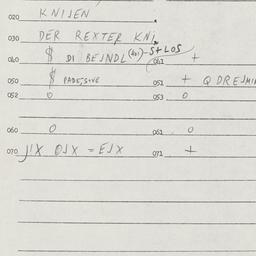 020 KNIJEN
030 DER REXTER KNI
040 $ DI BEJNDL (001)-S+LOS 041 +
050 $ 051 + Q DREJMI
052 0 053 0
060 0 061 0
070 J!X OJX = EJX 071 +